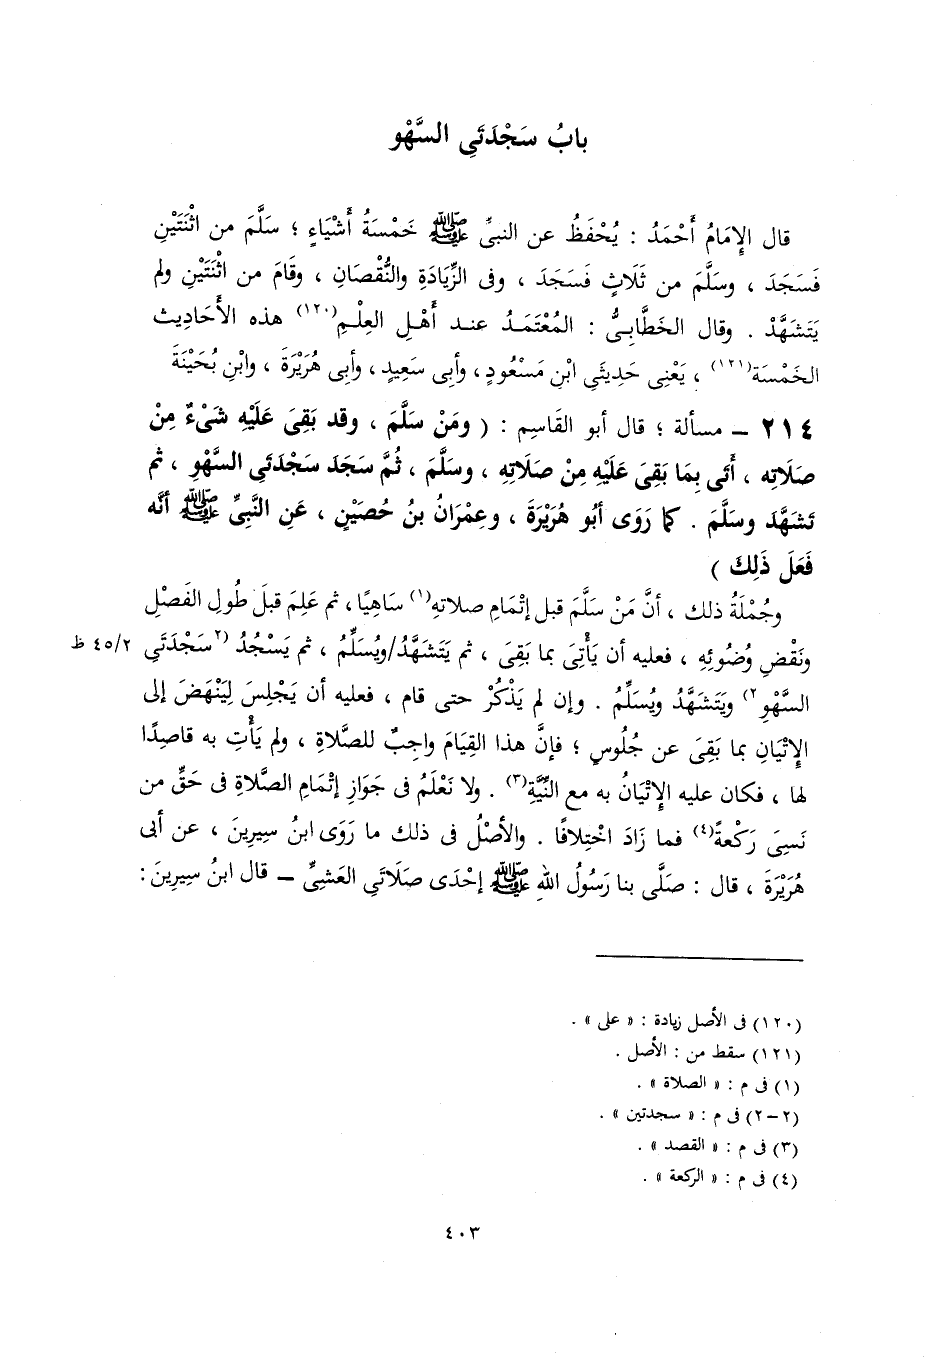 بابُ سَجْدَتَىِ السَّهْوِ
قال الإِمَامُ أَحْمَدُ : يُحْفَظُ عن النبىِّ ﷺ خَمْسَةُ أَشْيَاءٍ ؛ سَلَّمَ من اثْنَتَيْنِ
فَسَجَدَ ، وسَلَّمَ من ثَلَاثٍ فَسَجَدَ ، وفى الزِّيَادَةِ والنُّقْصَانِ ، وقَامَ من اثْنَتَيْنِ ولم
يَتَشَهَّدْ . وقال الخَطَّابِىُّ : المُعْتَمَدُ عند أَهْلِ العِلْمِ(١٢٠) هذه الأَحَادِيث
الخَمْسَة(١٢١) ، يَعْنِى حَدِيثَىِ ابْنِ مَسْعُودٍ ، وأبى سَعِيدٍ ، وأبى هُرَيْرَةَ ، وابْنِ بُحَيْنَةَ
٢١٤ – مسألة ؛ قال أبو القَاسِمِ : ( ومَنْ سَلَّمَ ، وقد بَقِىَ عَلَيْهِ شَىْءٌ مِنْ
صَلَاتِه ، أَتَى بِمَا بَقِىَ عَلَيْهِ مِنْ صَلَاتِهِ ، وسَلَّمَ ، ثُمَّ سَجَدَ سَجْدَتَىِ السَّهْوِ ، ثم
تَشَهَّدَ وسَلَّمَ . كما رَوَى أبُو هُرَيْرَةَ ، وعِمْرَانُ بنُ حُصَيْنٍ ، عَنِ النَّبِىِّ ﷺ أنَّه
فَعَلَ ذَلِكَ )
وجُمْلَةُ ذلك ، أنَّ مَنْ سَلَّمَ قبل إتْمَامِ صلاتِهِ(١) سَاهِيًا ، ثم عَلِمَ قبلَ طُولِ الفَصْلِ
ونَقْضِ وُضُوئِهِ ، فعليه أن يَأْتِىَ بما بَقِىَ ، ثم يَتَشَهَّدُ/ويُسَلِّمُ ، ثم يَسْجُدُ (٢سَجْدَتَىِ ٤٥/٢ ظ
السَّهْوِ٢) ويَتَشَهَّدُ ويُسَلِّمُ . وإن لم يَذْكُرْ حتى قام ، فعليه أن يَجْلِسَ لِيَنْهَضَ إلى
الإِتْيَانِ بما بَقِىَ عن جُلُوسٍ ؛ فإنَّ هذا القِيَامَ واجِبٌ للصَّلاةِ ، ولم يَأْتِ به قاصِدًا
لها ، فكان عليه الإِتْيَانُ به مع النِّيَّةِ(٣) . ولا نَعْلَمُ فى جَوَازِ إتْمَامِ الصَّلاةِ فى حَقِّ من
نَسِىَ رَكْعةً(٤) فما زَادَ اخْتِلافًا . والأصْلُ فى ذلك ما رَوَى ابنُ سِيرِينَ ، عن أبى
هُرَيْرَةَ ، قال : صَلَّى بنا رَسُولُ اللهِ ﷺ إحْدَى صَلَاتَىِ العَشِىِّ – قال ابنُ سِيرِينَ :
(١٢٠) فى الأصل زيادة : « على » .
(١٢١) سقط من : الأصل .
(١) فى م : « الصلاة » .
(٢–٢) فى م : « سجدتين » .
(٣) فى م : « القصد » .
(٤) فى م : « الركعة » .
٤٠٣